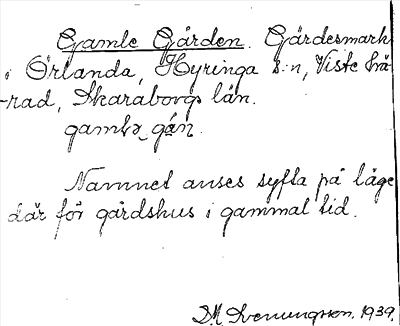 Gamle Gården. Gärdesmark
i Örlanda, Hyringa s:n, Viste hä-
-rad, Skaraborgs län.
gamlə gán.
Namnet anses syfta på läge
där för gårdshus i gammal tid.
D.M. Svenungsson. 1939.